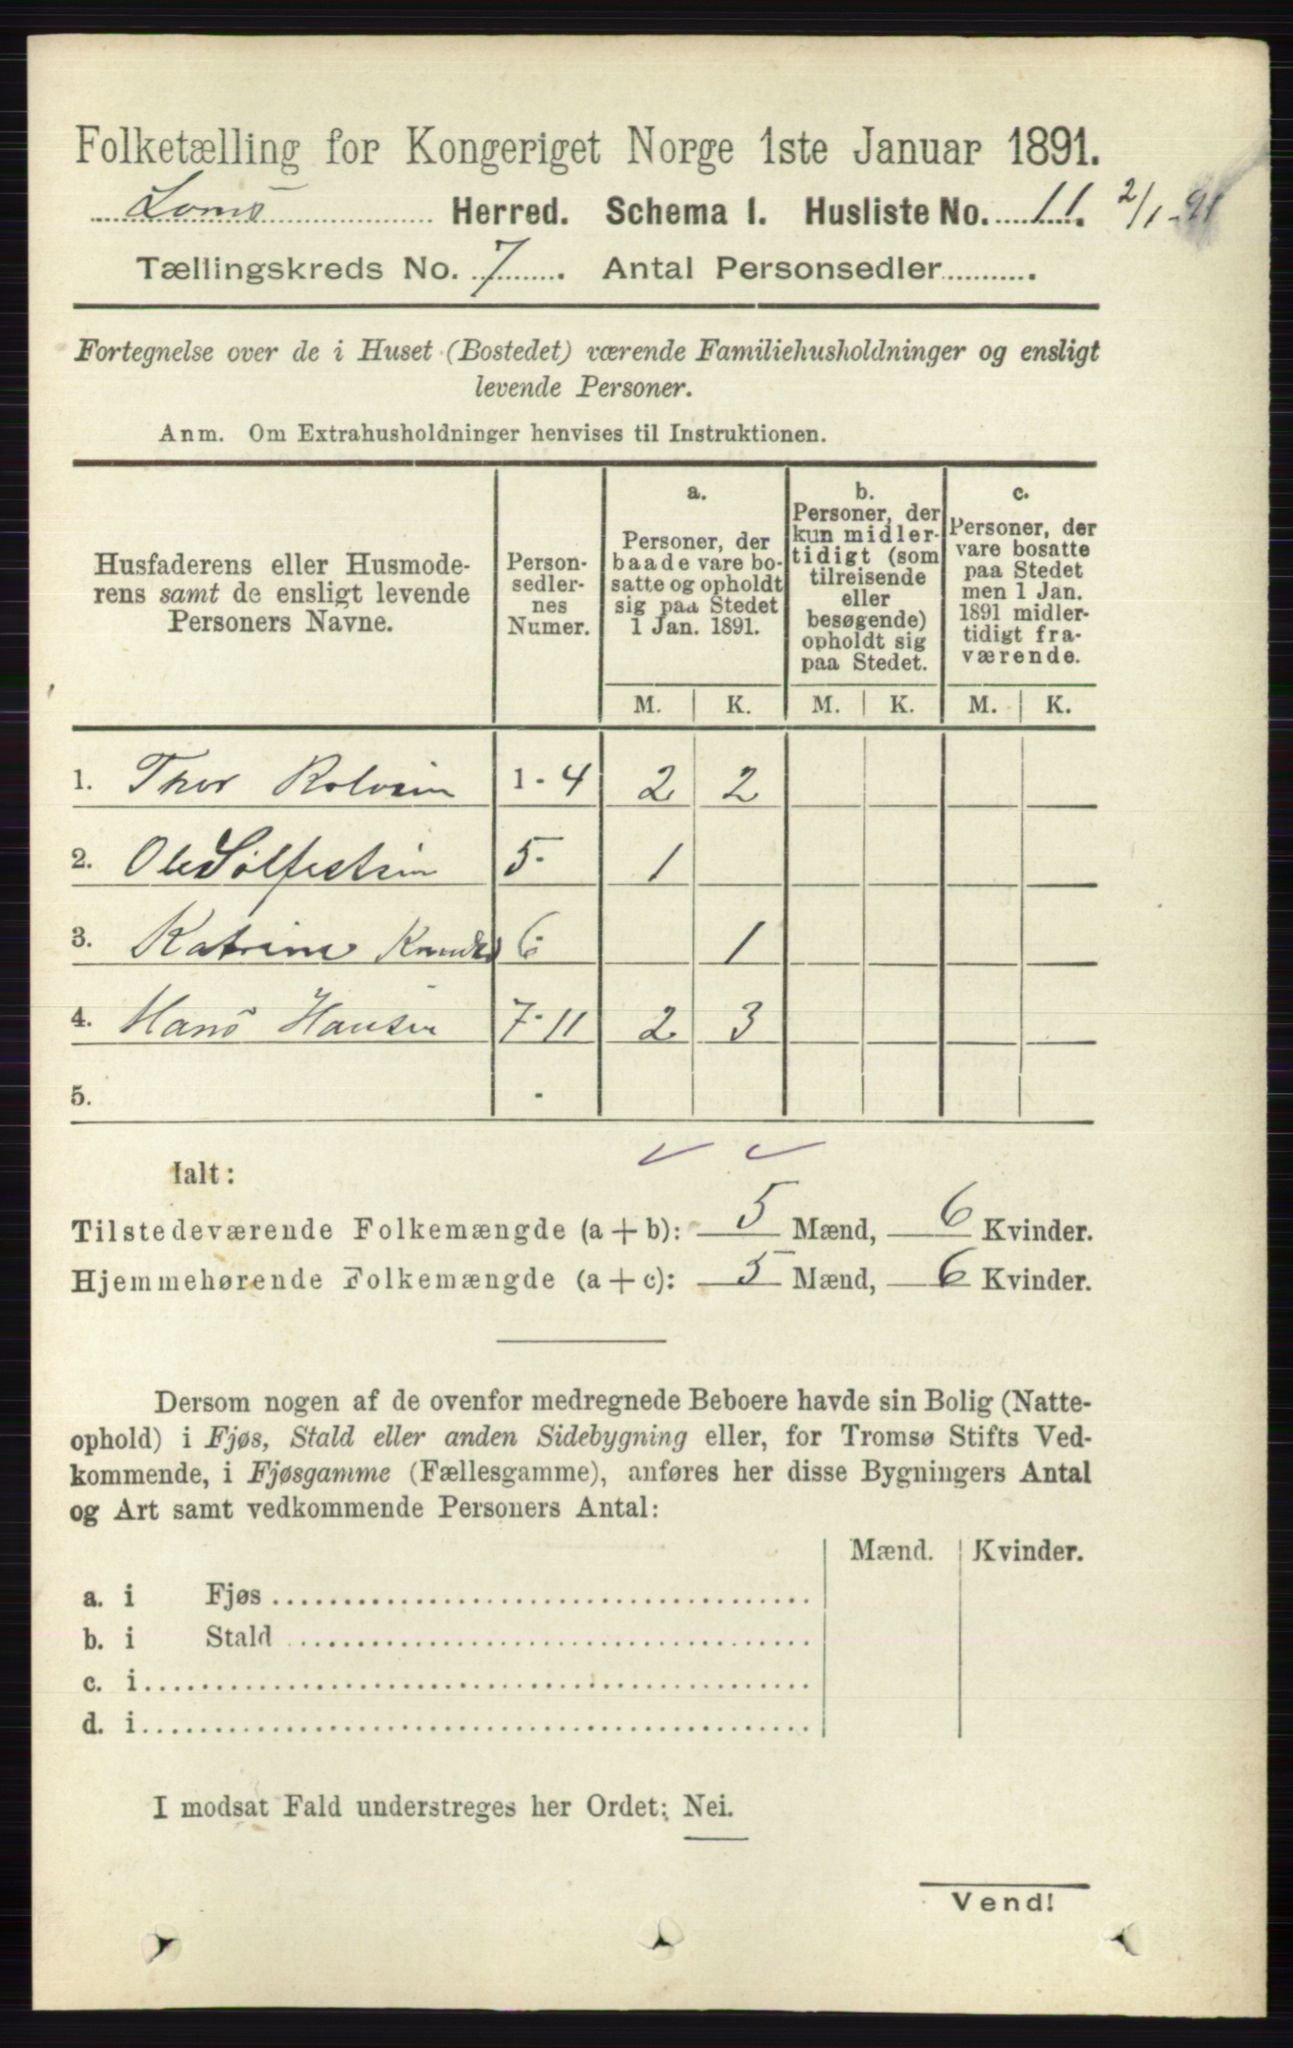 Folketælling for Kongeriget Norge 1ste Januar 1891.
Loms Herred. Schema 1. Husliste No. 11. 2/1-91
Tællingskreds No. 7. Antal Personsedler
Fortegnelse over de i Huset (Bostedet) værende Familiehusholdninger og ensligt
levende Personer.
Anm. Om Extrahusholdninger henvises til Instruktionen.
Husfaderens eller Husmode-
rens samt de ensligt levende
Personers Navne.
Person-
sedler-
nes
Numer.
a.
Personer, der
baade vare bo-
satte og opholdt
sig paa Stedet
1 Jan. 1891.
b.
Personer, der
kun midler-
tidigt (som
tilreisende
eller
besøgende)
opholdt sig
paa Stedet.
c.
Personer, der
vare bosatte
paa Stedet
men 1 Jan.
1891 midler-
tidigt fra-
værende.
M. K. M. K. M. K.
1. Thor Rolvsen 1-4 2 2
2. Ole 5- 1
3. Katrine 6- 1
4. Hans Hansen 7-11 2 3
5. -
Ialt:
Tilstedeværende Folkemængde (a + b): 5 Mænd, 6 Kvinder.
Hjemmehørende Folkemængde (a + c): 5 Mænd, 6 Kvinder.
Dersom nogen af de ovenfor medregnede Beboere havde sin Bolig (Natte-
ophold) i Fjøs, Stald eller anden Sidebygning eller, for Tromsø Stifts Ved-
kommende, i Fjøsgamme (Fællesgamme), anføres her disse Bygningers Antal
og Art samt vedkommende Personers Antal:
Mænd. Kvinder.
a. i Fjøs
b. i Stald
c. i
d. i
I modsat Fald understreges her Ordet: Nei.
Vend!